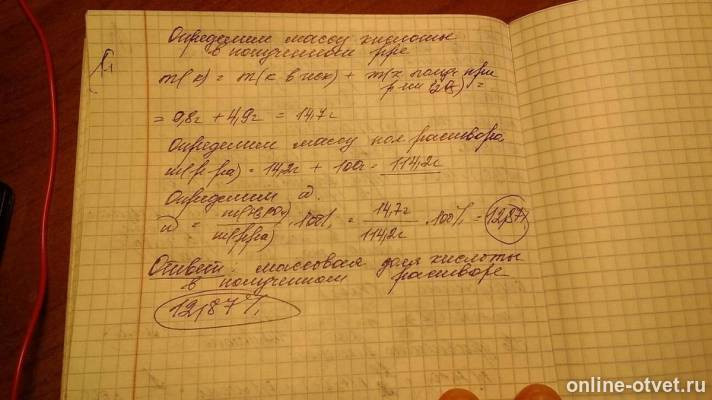 Определим массу кислоты
в полученном р-ре
m(к) = m(к в исх) + m(к получ при
р-ии) =
= 9,8г + 4,9г = 14,7г
Определим массу пол. раствора
m(р-ра) = 14,2г + 100г = 114,2г
Определим ω.
ω = m(H3PO4) / m(р-ра) · 100% = 14,7г / 114,2г · 100% = 12,87%
Ответ: массовая доля кислоты
в полученном растворе
12,87%
online-otvet.ru